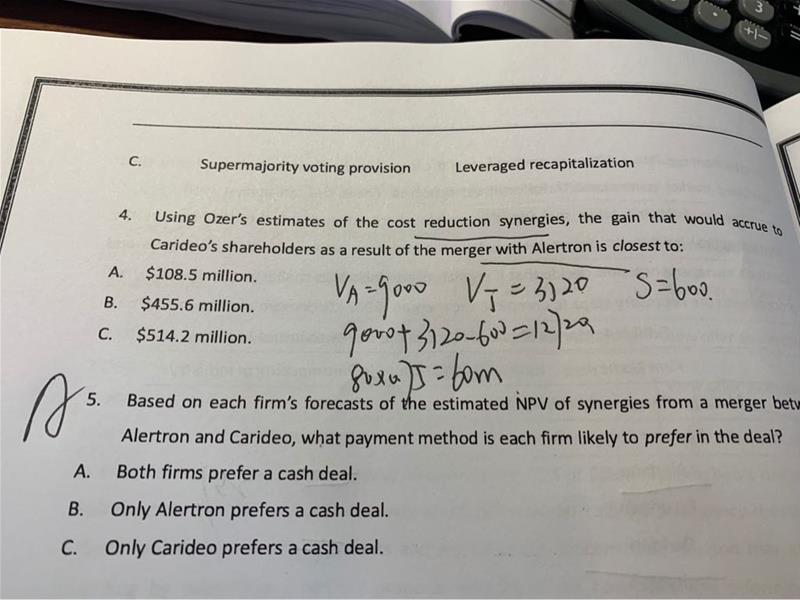 3
+/−
C. Supermajority voting provision Leveraged recapitalization
4. Using Ozer's estimates of the cost reduction synergies, the gain that would accrue to
Carideo's shareholders as a result of the merger with Alertron is closest to:
A. $108.5 million.
B. $455.6 million.
C. $514.2 million.
VA=9000 VT=3120 S=600.
9000+3120-600=12720
=60m
A
5. Based on each firm's forecasts of the estimated NPV of synergies from a merger betw
Alertron and Carideo, what payment method is each firm likely to prefer in the deal?
A. Both firms prefer a cash deal.
B. Only Alertron prefers a cash deal.
C. Only Carideo prefers a cash deal.